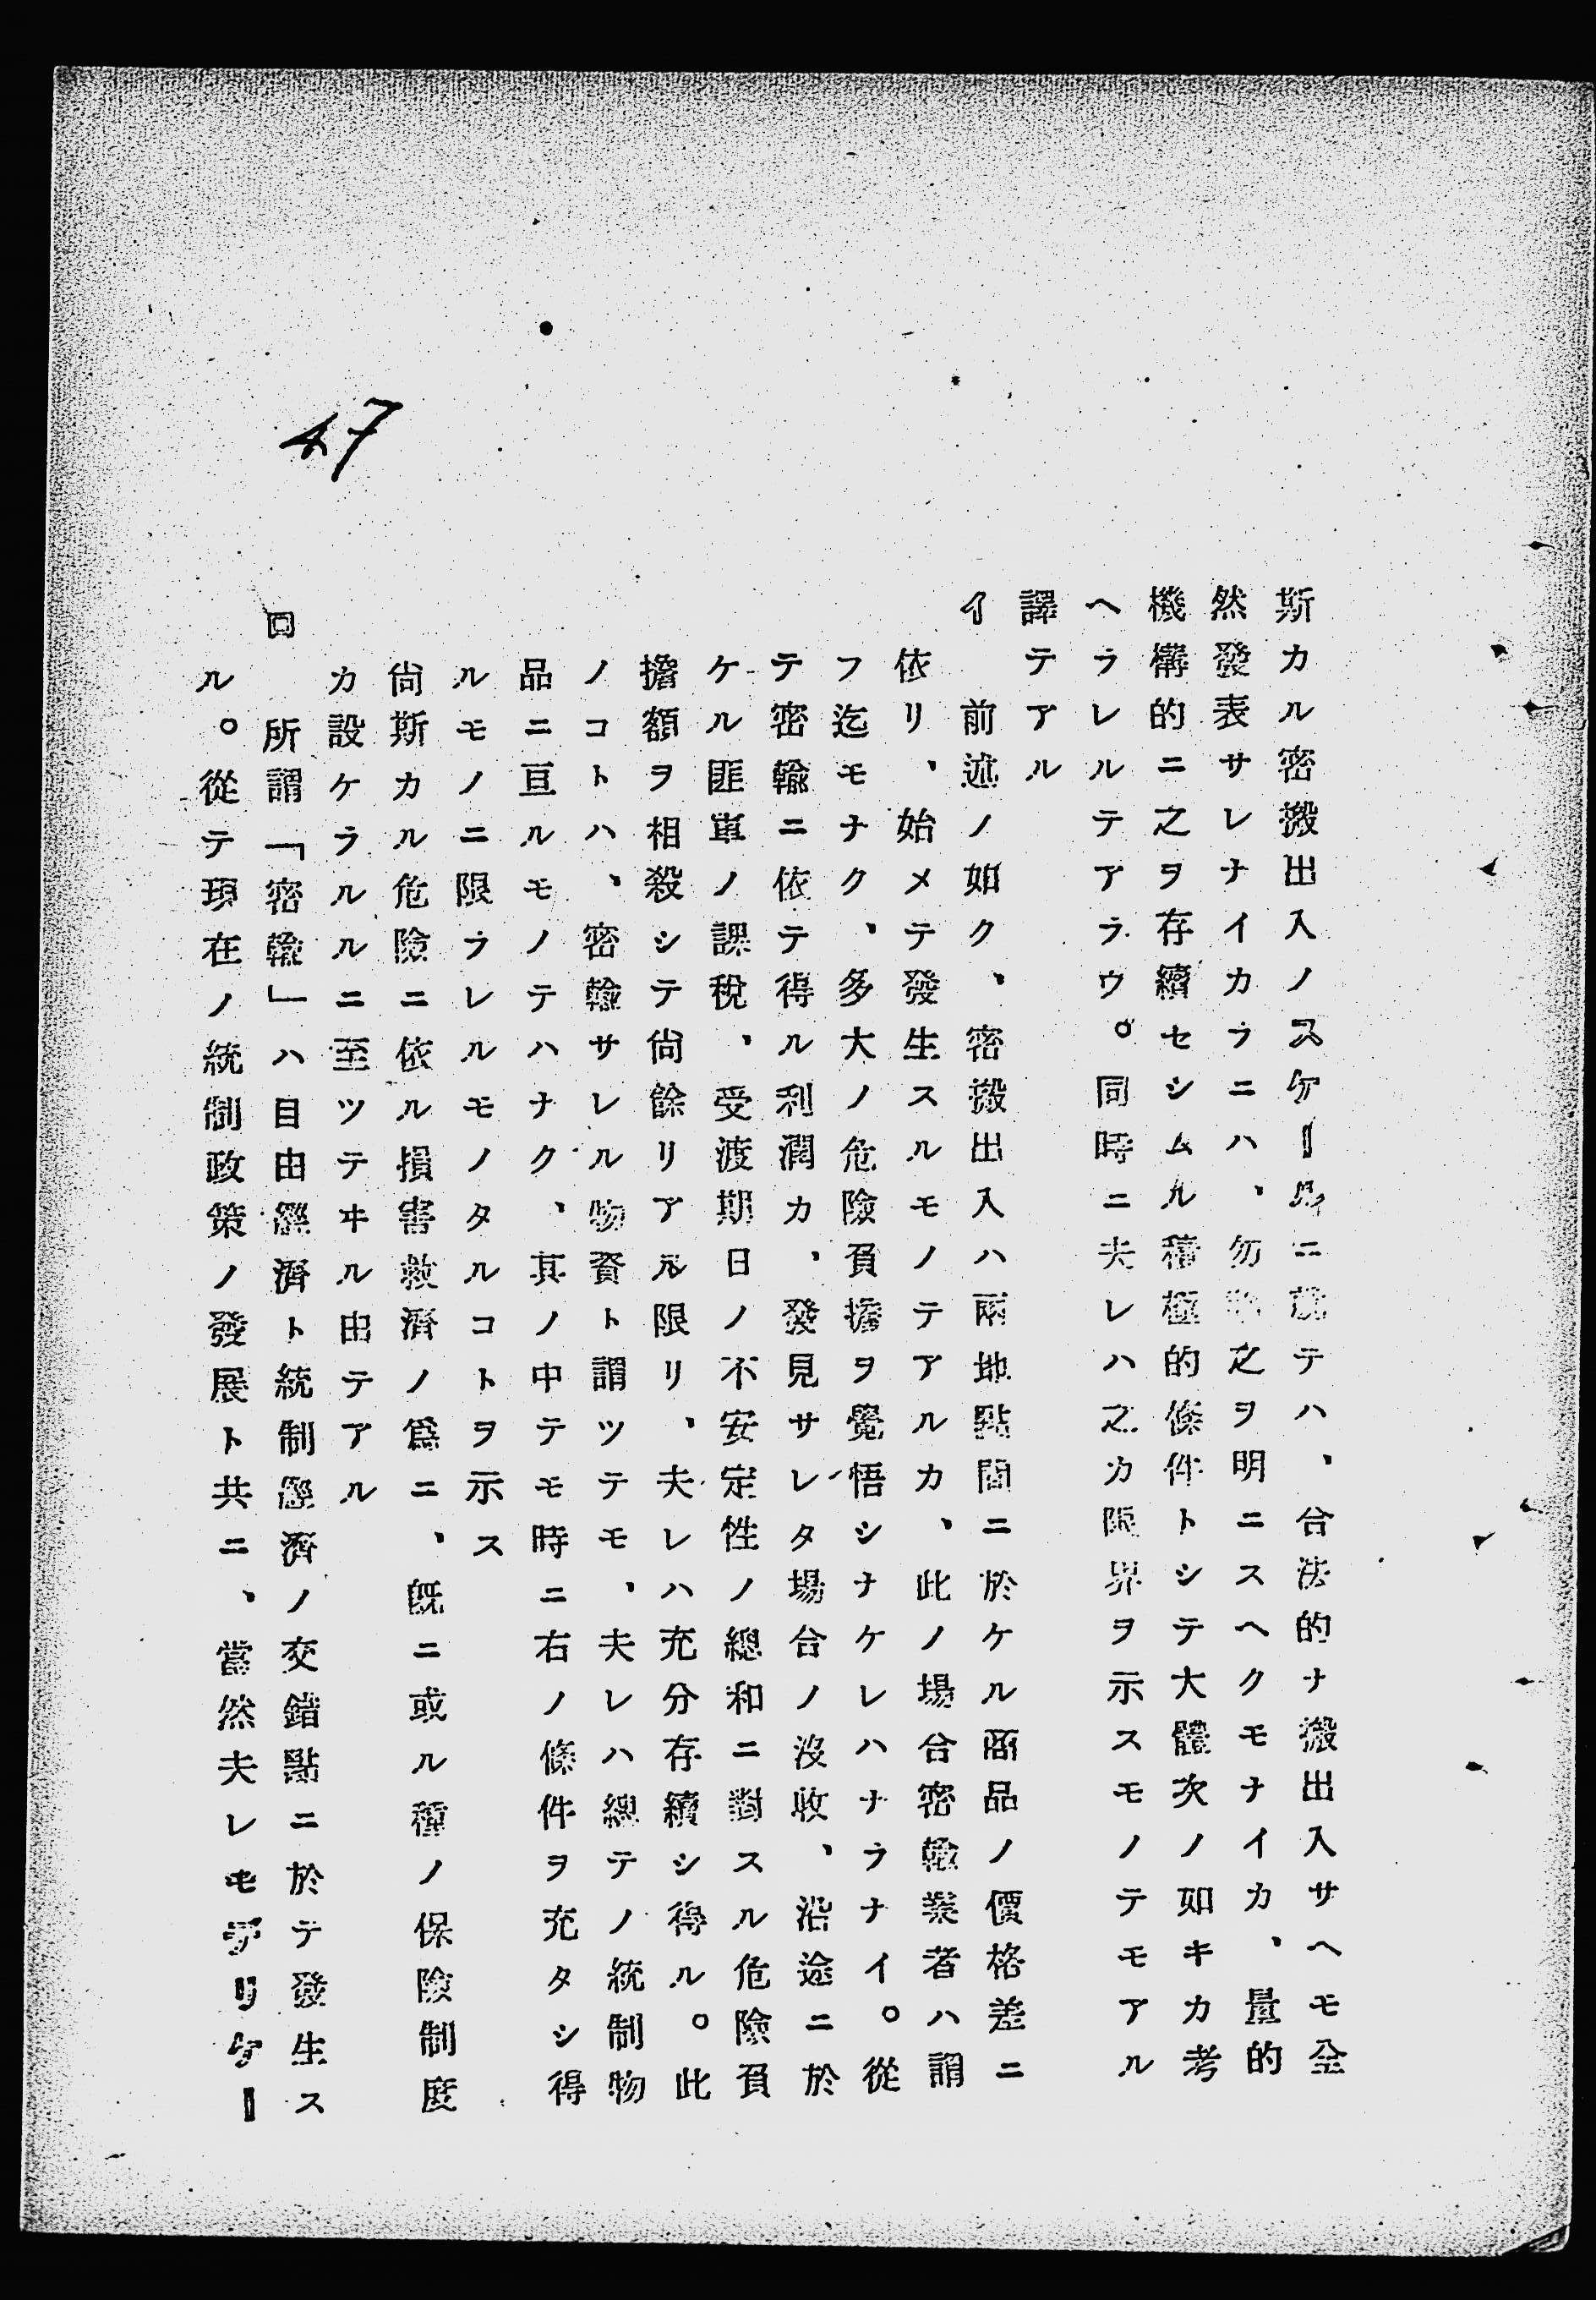 斯カル密搬出入ノスケールニ就テハ、合法的ナ搬出入サヘモ全
然發表サレナイカラニハ、勿論之ヲ明ニスヘクモナイカ、量的
機構的ニ之ヲ存續セシムル積極的條件トシテ大體次ノ如キカ考
ヘラレルテアラウ。同時ニ夫レハ之カ限界ヲ示スモノテモアル
譯テアル
イ 前述ノ如ク、密搬出入ハ兩地點間ニ於ケル商品ノ價格差ニ
依リ、始メテ發生スルモノテアルカ、此ノ場合密輸業者ハ謂
フ迄モナク、多大ノ危險負擔ヲ覺悟シナケレハナラナイ。從
テ密輸ニ依テ得ル利潤カ、發見サレタ場合ノ沒收、沿途ニ於
ケル匪軍ノ課稅、受渡期日ノ不安定性ノ總和ニ對スル危險負
擔額ヲ相殺シテ尙餘リアル限リ、夫レハ充分存續シ得ル。此
ノコトハ、密輸サレル物資ト謂ツテモ、夫レハ總テノ統制物
品ニ亘ルモノテハナク、其ノ中テモ時ニ右ノ條件ヲ充タシ得
ルモノニ限ラレルモノタルコトヲ示ス
尙斯カル危險ニ依ル損害救濟ノ爲ニ、既ニ或ル種ノ保險制度
カ設ケラルルニ至ツテヰル由テアル
口 所謂「密輸」ハ自由經濟ト統制經濟ノ交錯點ニ於テ發生ス
ル。從テ現在ノ統制政策ノ發展ト共ニ、當然夫レモデリケー
47